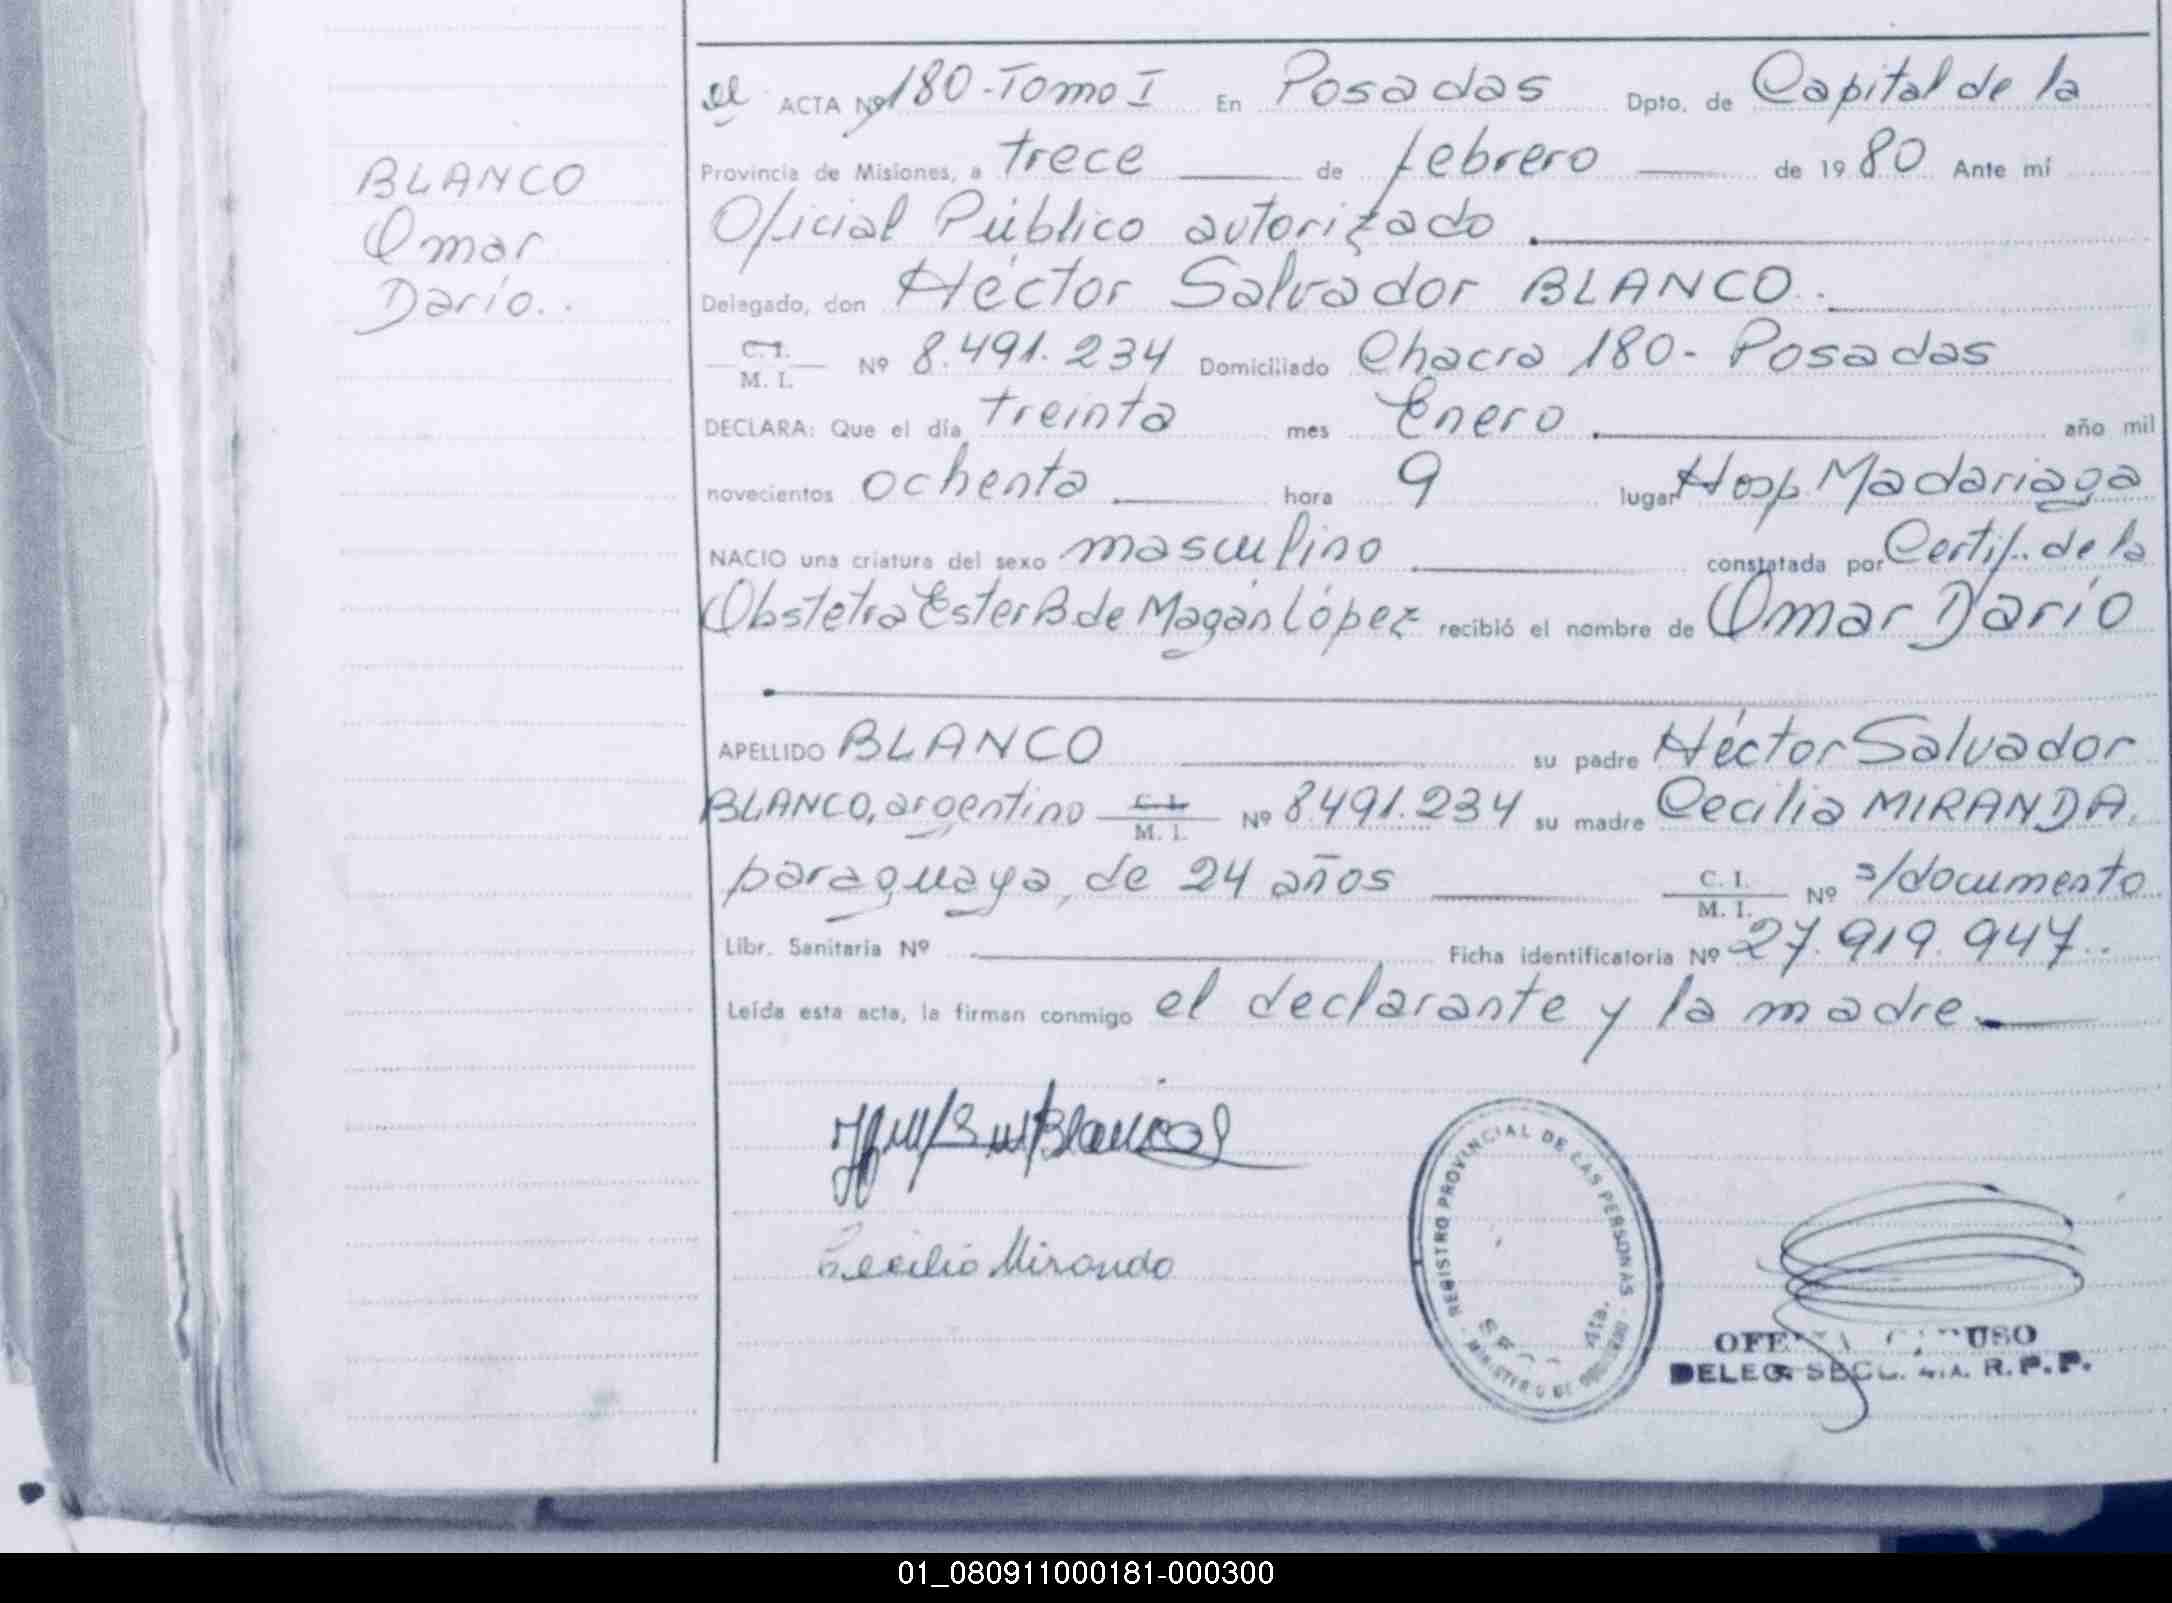 BLANCO
Omar
Darío..
el ACTA Nº 180-Tomo I En Posadas Dpto. de Capital de la
Provincia de Misiones, a trece de febrero de 1980 Ante mí
Oficial Público autorizado
Delegado, don Héctor Salvador BLANCO.
C. I.
M. I. Nº 8.491.234 Domiciliado Chacra 180- Posadas
DECLARA: Que el día treinta mes Enero año mil
novecientos ochenta hora 9 lugar Hosp. Madariaga
NACIO una criatura del sexo masculino constatada por Certif. de la
Obstetra Ester B de Magán López recibió el nombre de Omar Darío
APELLIDO BLANCO su padre Héctor Salvador
BLANCO, argentino C. I. M. I. Nº 8491.234 su madre Cecilia MIRANDA,
paraguaya, de 24 años C. I. M. I. Nº s/documento
Libr. Sanitaria Nº Ficha identificatoria Nº 27.919.947..
Leída esta acta, la firman conmigo el declarante y la madre
Cecilia Miranda
REGISTRO PROVINCIAL DE LAS PERSONAS - MINISTERIO DE GOBIERNO -
4ta.
DELEG. SECC. 4TA. R.P.P.
01_080911000181-000300